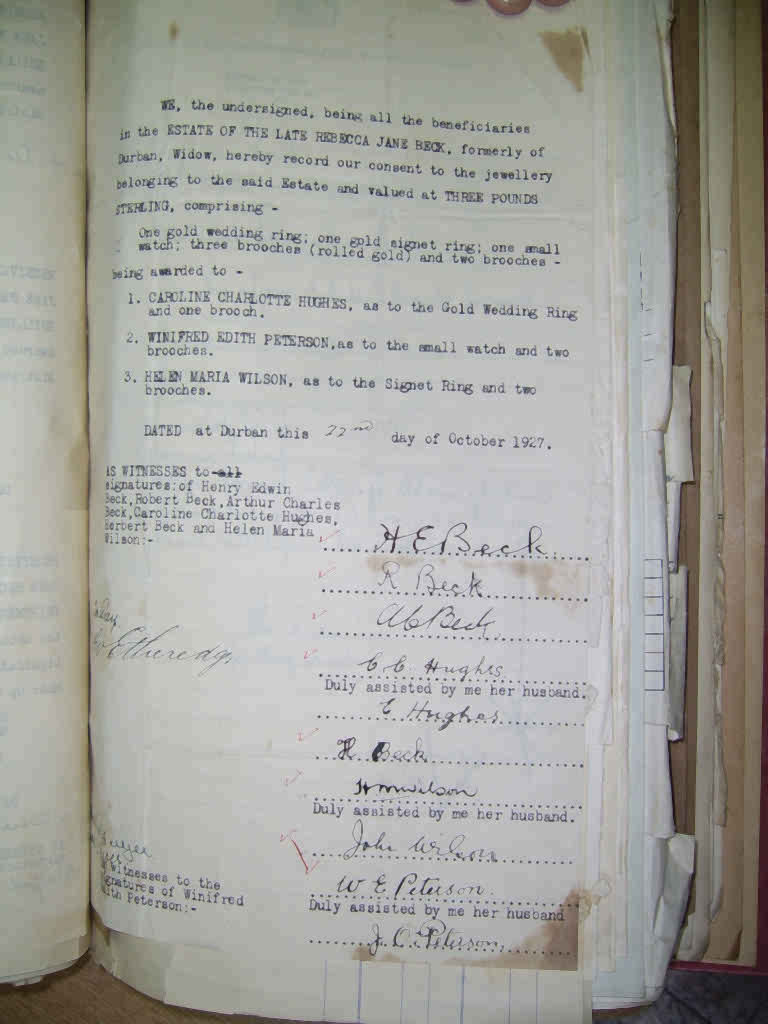 WE, the undersigned, being all the beneficiaries
in the ESTATE OF THE LATE REBECCA JANE BECK, formerly of
Durban, Widow, hereby record our consent to the jewellery
belonging to the said Estate and valued at THREE POUNDS
STERLING, comprising -
One gold wedding ring; one gold signet ring; one small
watch; three brooches (rolled gold) and two brooches -
being awarded to -
1. CAROLINE CHARLOTTE HUGHES, as to the Gold Wedding Ring
and one brooch.
2. WINIFRED EDITH PETERSON, as to the small watch and two
brooches.
3. HELEN MARIA WILSON, as to the Signet Ring and two
brooches.
DATED at Durban this 22nd day of October 1927.
AS WITNESSES to all
signatures:of Henry Edwin
Beck, Robert Beck, Arthur Charles
Beck, Caroline Charlotte Hughes,
Herbert Beck and Helen Maria
Wilson:-
H E Beck
R Beck
A C Beck
Etheredge
C C Hughes
Duly assisted by me her husband.
C Hughes
H Beck
H M Wilson
Duly assisted by me her husband.
John Wilson
witnesses to the
signatures of Winifred
Edith Peterson:-
W E Peterson.
Duly assisted by me her husband
J. C. Peterson.